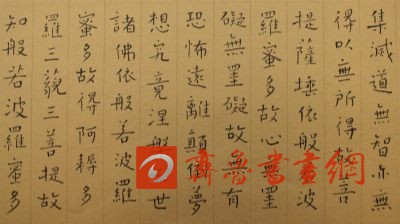 集滅道無智亦無
得以無所得故菩
提薩埵依般若波
羅蜜多故心無罣
礙無罣礙故無有
恐怖遠離顛倒夢
想究竟涅槃三世
諸佛依般若波羅
蜜多故得阿耨多
羅三藐三菩提故
知般若波羅蜜多
齊魯書畫網